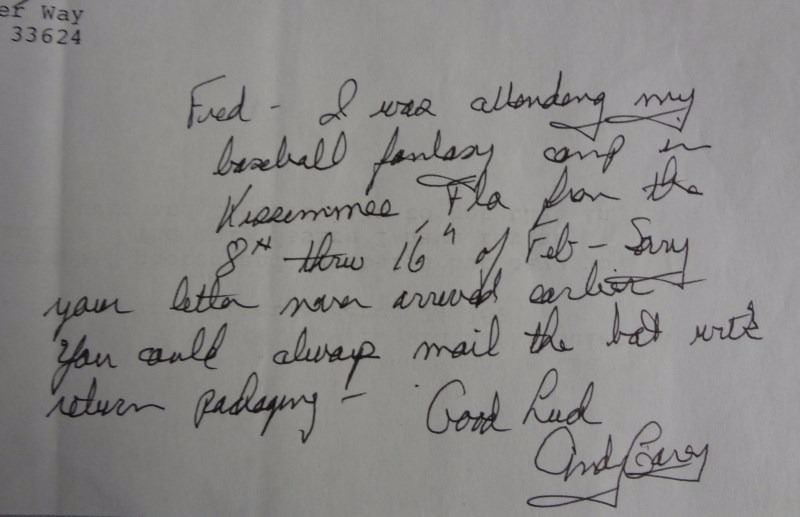 er Way
33624
Fred - I was attending my
baseball fantasy camp in
Kissemmee, Fla from the
8th thru 16th of Feb - Sorry
your letter never arrived earlier
You could always mail the bat with
return packaging - Good Luck
Andy Carey